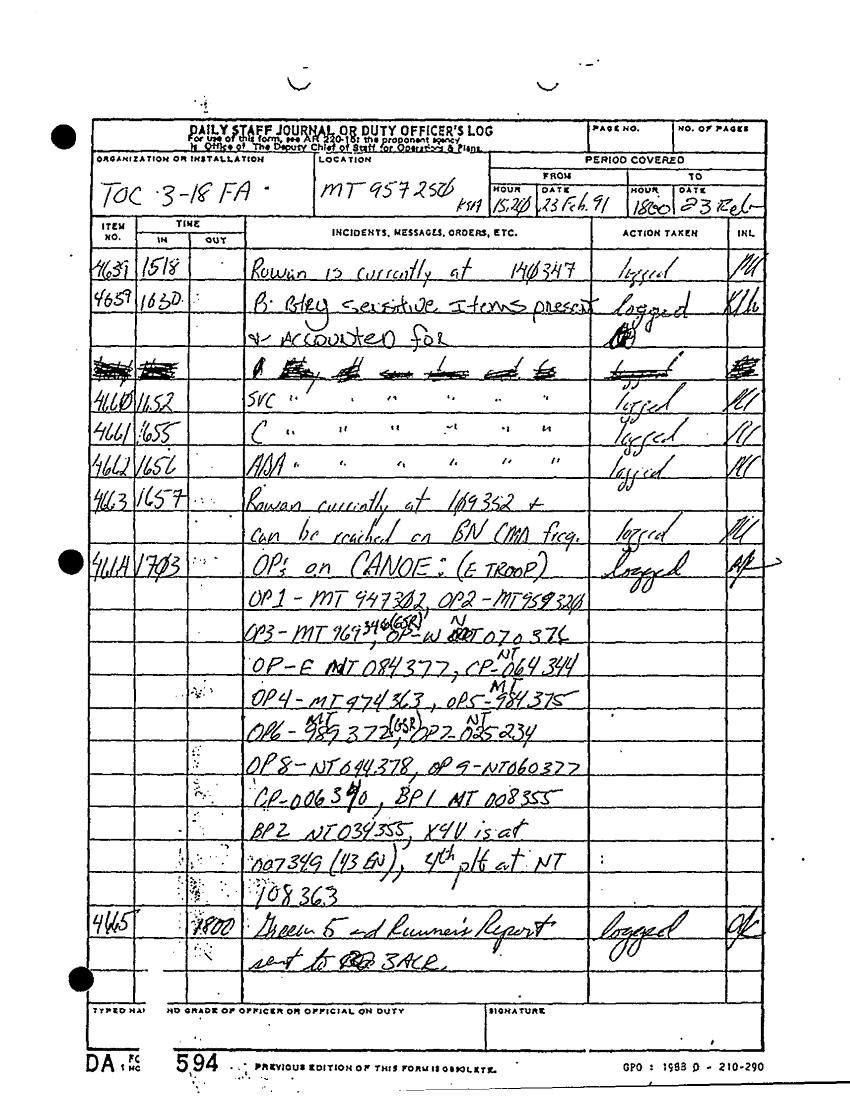 DAILY STAFF JOURNAL OR DUTY OFFICER'S LOG
For use of this form, see AR 220-15; the proponent agency
is Office of The Deputy Chief of Staff for Operations & Plans.
PAGE NO.
NO. OF PAGES
ORGANIZATION OR INSTALLATION
TOC 3-18 FA
LOCATION
MT 957250 KSA
PERIOD COVERED
FROM
TO
HOUR DATE HOUR DATE
1520 23 Feb. 91 1800 23 Feb
ITEM NO. TIME IN OUT INCIDENTS, MESSAGES, ORDERS, ETC. ACTION TAKEN INL
1518 Rowan is currently at 140347 logged
4659 1630 B. Btry sensitive Items present logged
& Accounted for
4660 1652 SVC " " " " " " logged
4661 1655 C " " " " " " logged
4662 1656 ADA " " " " " " logged
4663 1657 Rowan currently at 109352 +
can be reached on BN CMD freq. logged
1703 OP's on CANOE: (E TROOP) logged
OP1 - MT 947302, OP2 - MT959320
OP3 - MT 969346 (GSR), OP-W NT 070376
OP-E NT 084377, CP-NT 064344
OP4 - MT 974363, OP5 - MT 984375
OP6 - MT 989372 (GSR), OP7 - NT 025234
OP8 - NT 044378, OP9 - NT060377
CP-006390, BP1 MT 008355
BP2 NT 034355, X4V is at
007349 (43 EN), 4th plt at NT
108363
4665 1800 Green 5 and Runner's Report logged
sent to 3ACR.
TYPED NA ND GRADE OF OFFICER OR OFFICIAL ON DUTY
SIGNATURE
DA 594 PREVIOUS EDITION OF THIS FORM IS OBSOLETE.
GPO : 1983 O - 210-290